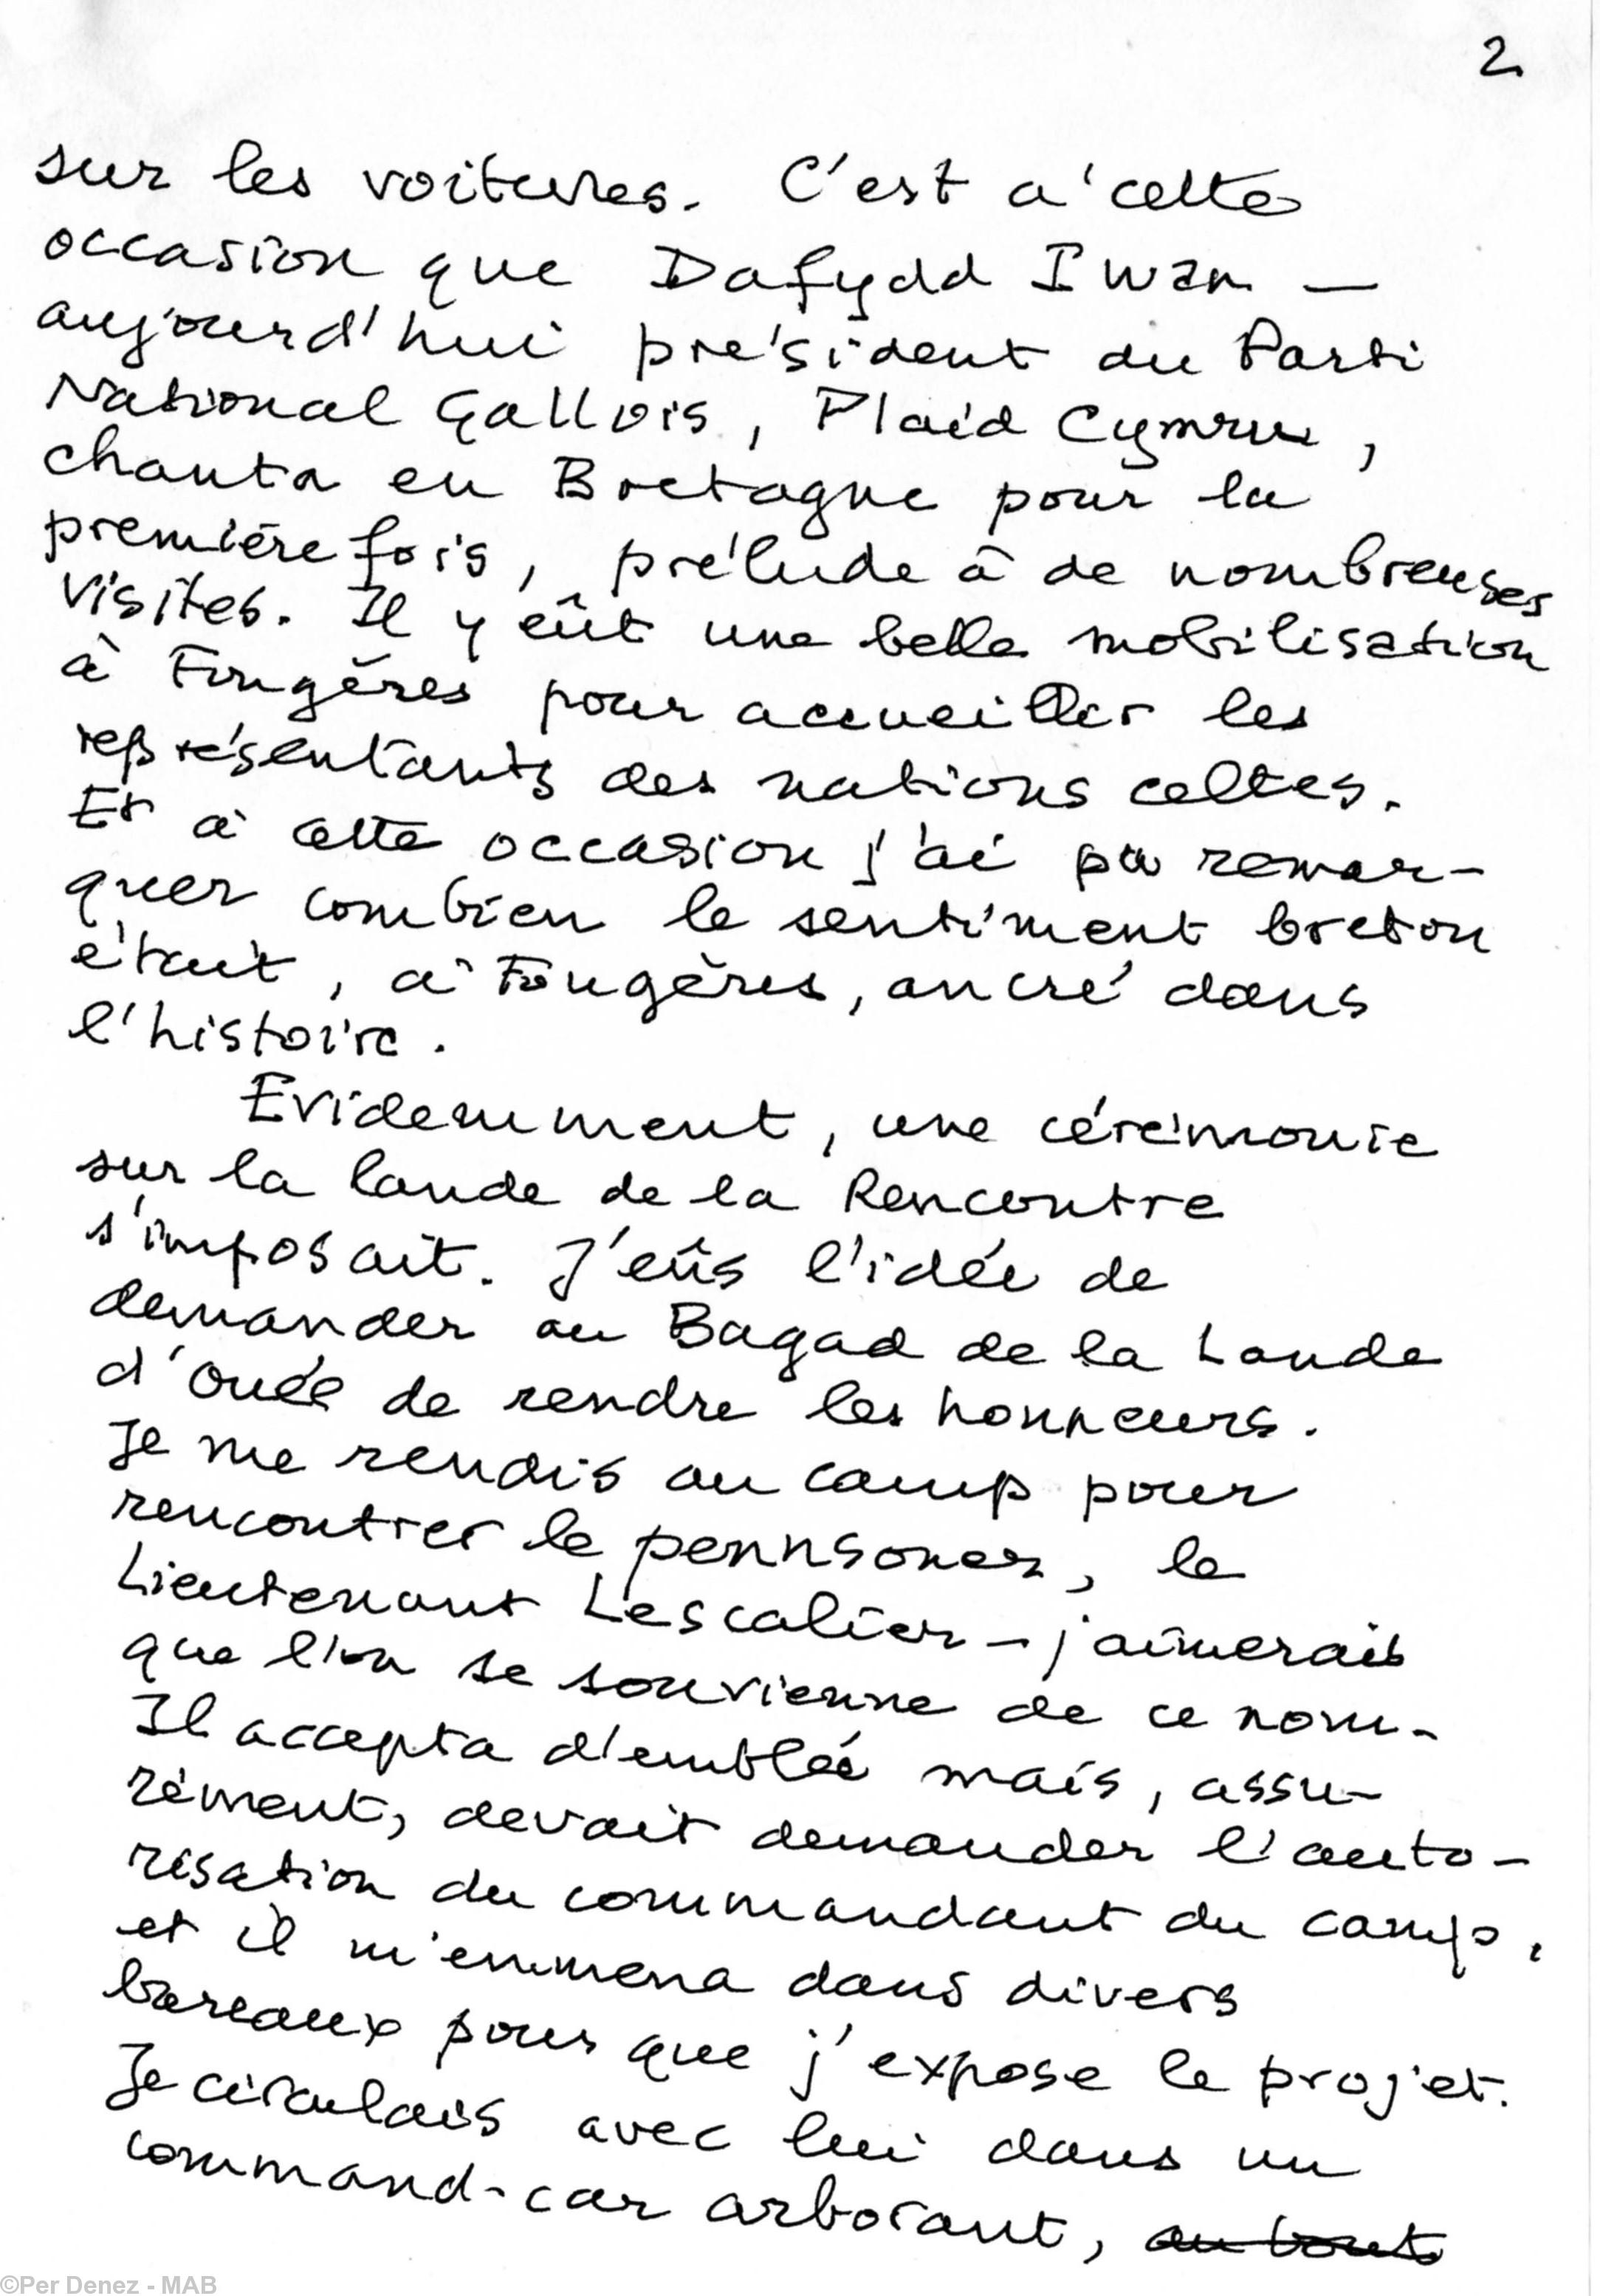 2
sur les voitures. C'est à cette
occasion que Dafydd Iwan —
aujourd'hui président du Parti
National Gallois, Plaid Cymru,
chanta en Bretagne pour la
première fois, prélude à de nombreuses
visites. Il y eût une belle mobilisation
à Fougères pour accueillir les
représentants des nations celtes.
Et à cette occasion j'ai pu remar-
quer combien le sentiment breton
était, à Fougères, ancré dans
l'histoire.
Evidemment, une cérémonie
sur la lande de la Rencontre
s'imposait. J'eûs l'idée de
demander au Bagad de la Lande
d'Ouée de rendre les honneurs.
Je me rendis au camp pour
rencontrer le pennsoner, le
Lieutenant Lescalier – j'aimerais
que l'on se souvienne de ce nom.
Il accepta d'emblée mais, assu-
rément, devait demander l'auto-
risation du commandant du camp,
et il m'emmena dans divers
bureaux pour que j'expose le projet.
Je circulais avec lui dans un
command-car arborant, au bout
©Per Denez - MAB